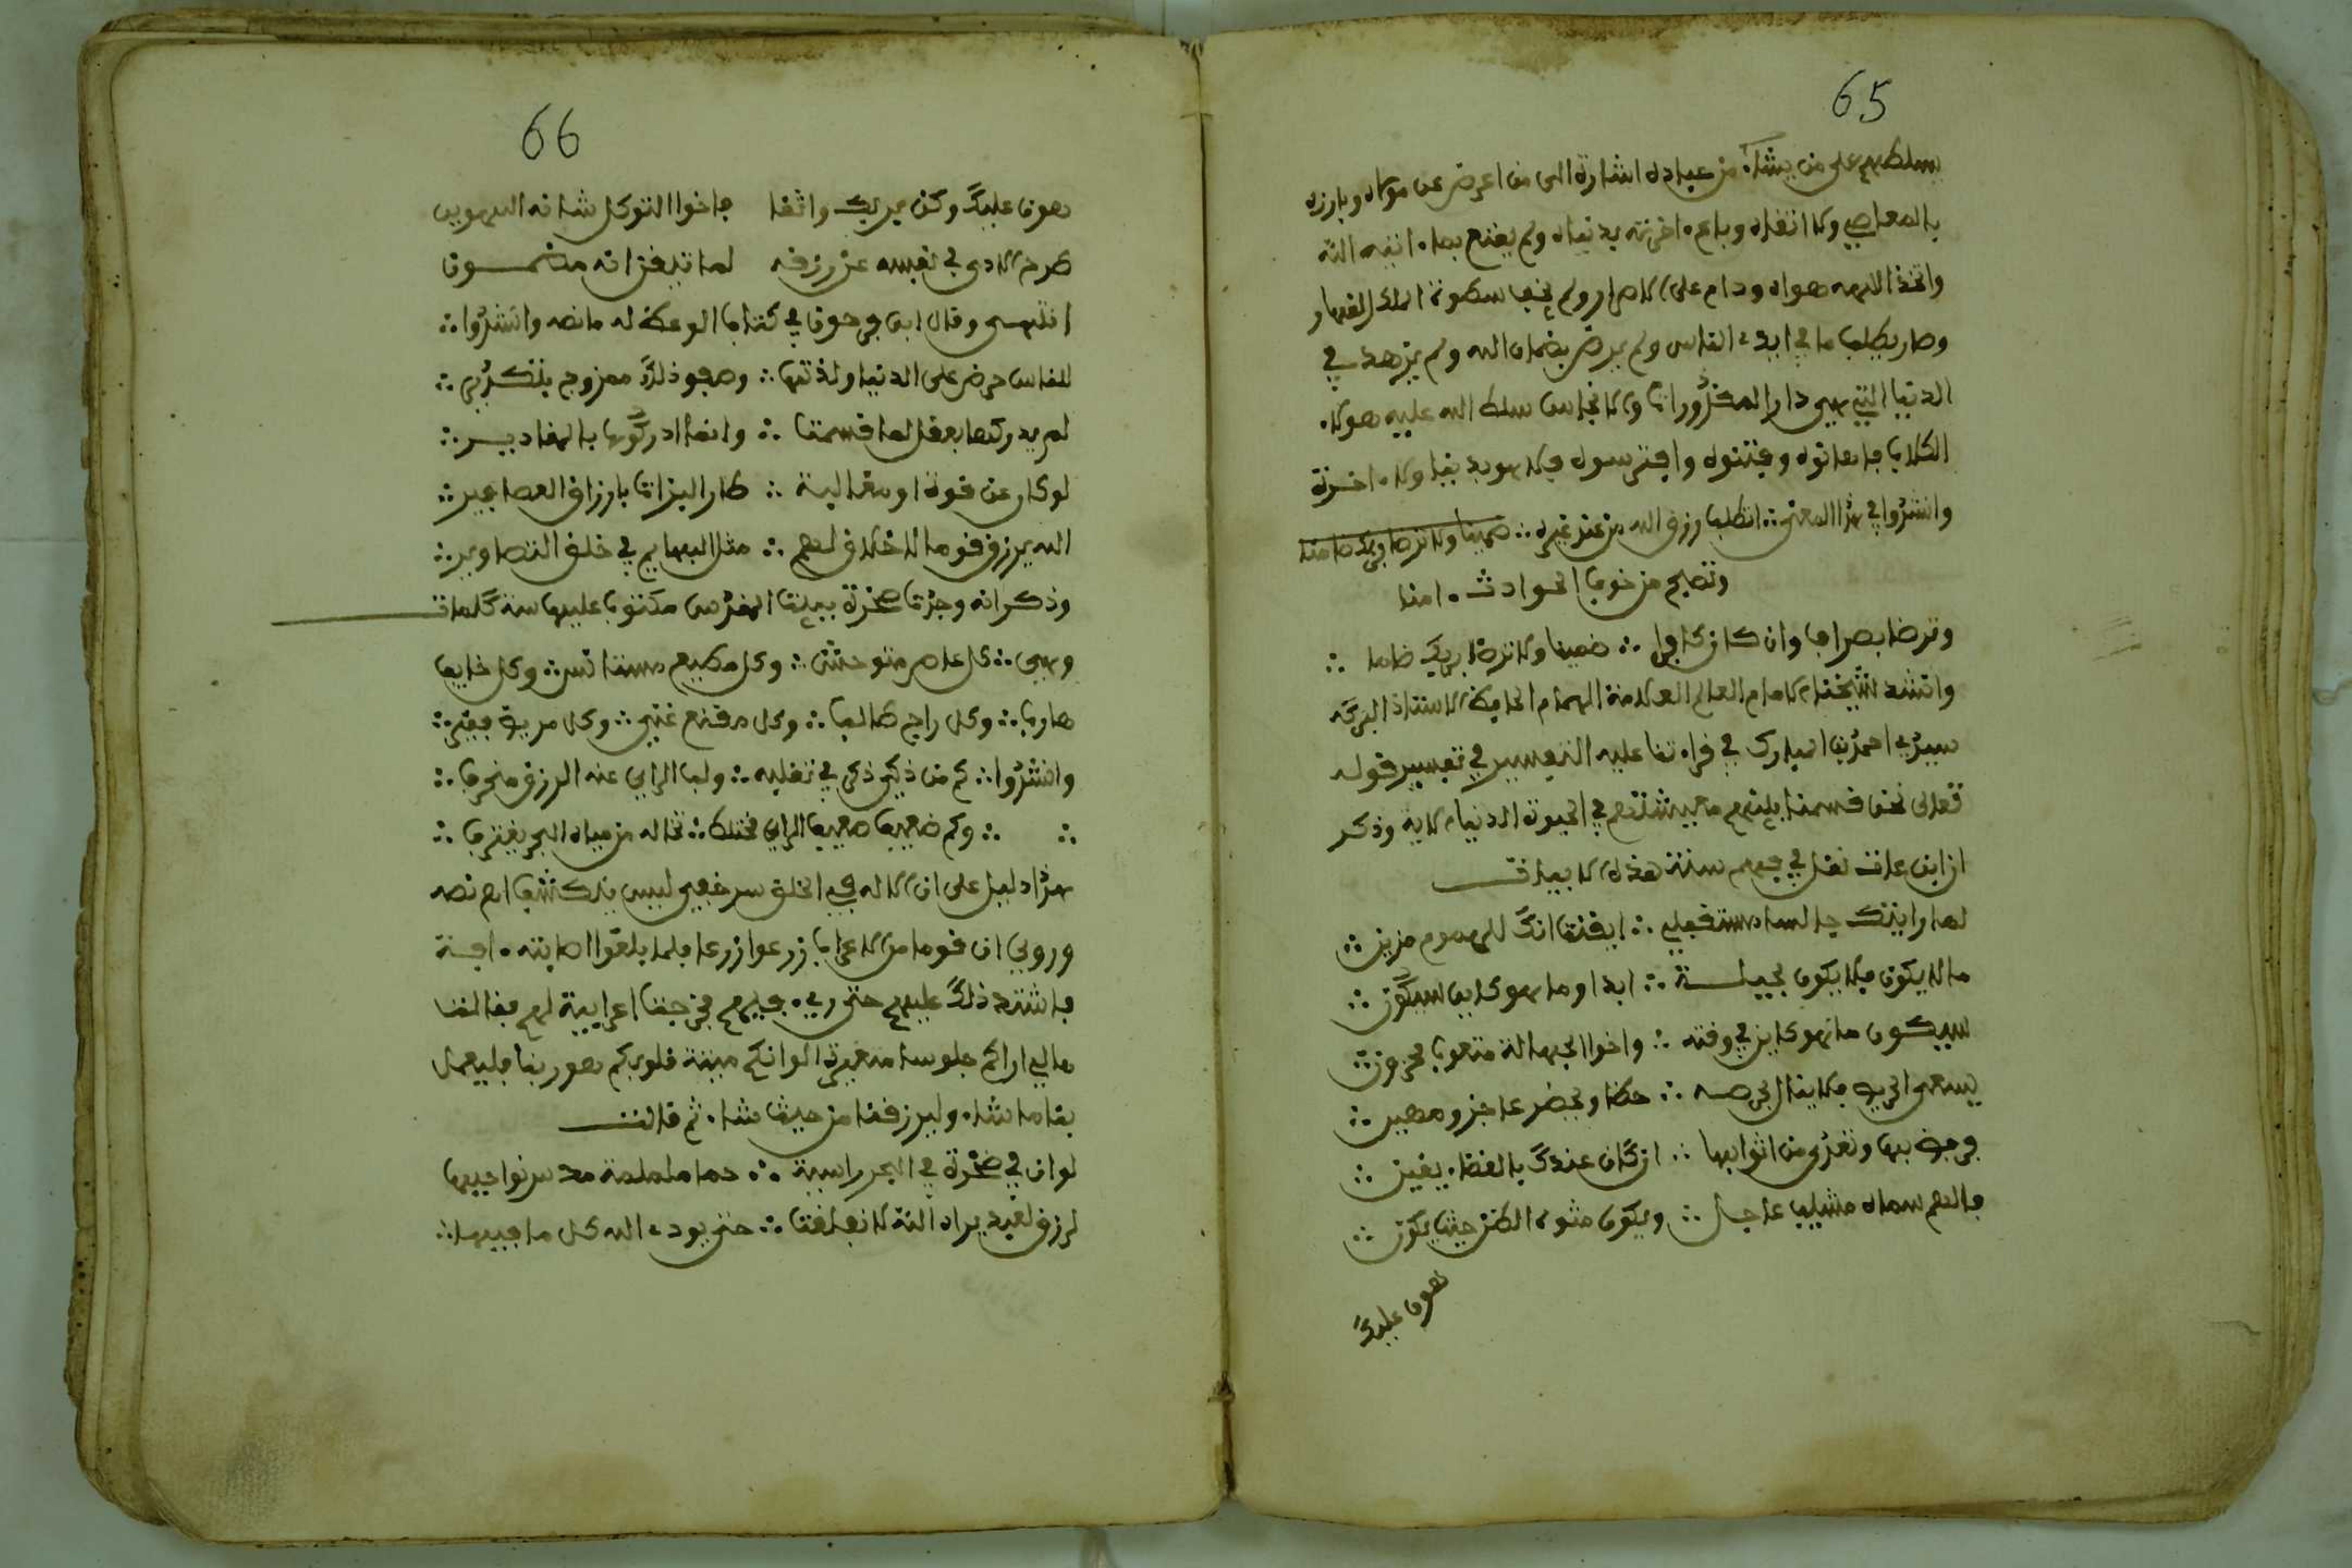 65
يسلطهم على من يشاء من عباده اشارة الى من اعرض عن مولاه وبارزه
بالمعاصي ولا اتقاه وباع اخرته بدنياه ولم يقنع بما اتيه الله
واتخذ الهه هواه ودام على الاصرار ولم يخف سطوة الملك القهار
وصار يطلب ما في ايدي الناس ولم يرض بضمان الله ولم يزهد في
الدنيا التي هي دار المكدورات والانجاس سلط الله عليه هولاء
الكلاب فاهانوه وفتنوه وافترسوه فلا هو بدنيا ولا اخرة
وانشدوا في هذا المعنى ∴ اتطلب رزق الله من عند غيره ∴ ضمينا ولا ترضا بربك ضامنا
وتصبح من خوف الحوادث امنا
وترضا بصراف وان كان كافرا ∴ ضمينا ولا ترضا بربك ضامنا ∴
وانشد شيخنا الامام العالم العلامة الهمام الحافظ الاستاذ البركة
سيدي احمد بن المبارك في قراءتنا عليه التفسير في تفسير قوله
تعالى نحن قسمنا بينهم معيشتهم في الحيوة الدنيا الاية وذكر
ان ابن عات نقل في فهرسته هذه الابيات
لما رايتك جالسا مستقبلي ∴ ايقنت انك للهموم قرين ∴
مالا يكون فلا يكون بحيلة ∴ ابدا وما هو كاين سيكون ∴
سيكون ما هو كاين في وقته ∴ واخوا الجهالة متعوب محزون ∴
يسعى الحريص فلا ينال بحرصه ∴ حظا ويحضر عاجز ومهين ∴
فرفض بها وتعرى من اثوابها ∴ ان كان عندك بالقضاء يقين ∴
فالهم سماه مشيب عاجل ∴ ويكون مثوى الظن حيث يكون ∴
هون عليك
66
هون عليك وكن بربك واثقا فاخوا التوكل شانه التهوين
طرح الاذى في نفسه عن رزقه لما تيقن انه مضمون
انتهى وقال ابن فرحون في كتاب الوعظ له ما نصه وانشدوا ∴
للناس حرص على الدنيا ولذتها ∴ وصفو ذلك ممزوج بتكدير ∴
لم يدركوها بعقل لما قسمت ∴ وانما ادركوها بالمقادير ∴
لو كان عن قوة او مغالبة ∴ طار البزات بارزاق العصافير ∴
الله يرزق قوما لا خلاق لهم ∴ مثل البهايم في خلق التصاوير ∴
وذكر انه وجدت صخرة ببيت المقدس مكتوب عليها ستة كلمات
وهي ∴ كل عاص متوحش ∴ وكل مطيع مستانس ∴ وكل خايف
هارب ∴ وكل راج طالب ∴ وكل مقنع غني ∴ وكل مريد فقير ∴
وانشدوا ∴ كم من ذكي ذكي في تقلبه ∴ ولب الراي عنه الرزق منحرف ∴
∴ ∴ وكم ضعيف ضعيف الراي مختلط ∴ كانه من مياه البحر يغترف ∴
هذا دليل على ان الاله في الخلق سر خفي ليس ينكشف اه نصه
وروي ان قوما من الاعراب زرعوا زرعا فلما بلغوا اصابته افة
فاشتد ذلك عليهم حتى رءي فيهم فخرجت اعرابية لهم فقالت
مالي اراكم جلوسا متغيرة الوانكم ميتة قلوبكم هو ربنا فليفعل
بنا ما شاء وليرزقنا من حيث شاء ثم قالت
لو ان في صخرة في البحر راسية ∴ صما ململمة ملس نواحيها
لرزق لعبد يراه الله لانفلقت ∴ حتى يودي الله كل ما فيها ∴